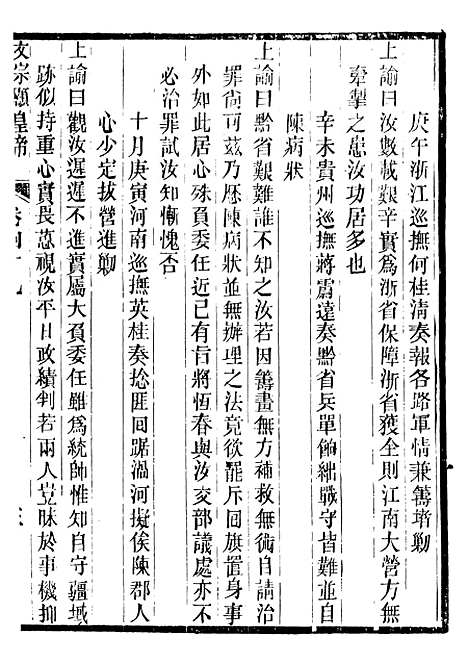 庚午浙江巡撫何桂清奏報各路軍情兼籌堵勦
上諭曰汝數載艱辛實爲浙省保障浙省獲全則江南大營方無
牽掣之患汝功居多也
辛未貴州巡撫蔣霨遠奏黔省兵單餉絀戰守皆難並自
陳病狀
上諭曰黔省艱難誰不知之汝若因籌畫無方補救無術自請治
罪尙可茲乃歷陳病狀並無辦理之法竟欲罷斥回旗置身事
外如此居心殊負委任近已有旨將恆春與汝交部議處亦不
必治罪試汝知慚愧否
十月庚寅河南巡撫英桂奏捻匪回踞渦河擬俟陳郡人
心少定拔營進勦
上諭曰觀汝遲遲不進實屬大負委任雖爲統帥惟知自守疆域
跡似持重心實畏葸視汝平日政績判若兩人豈昧於事機抑
文宗顯皇帝